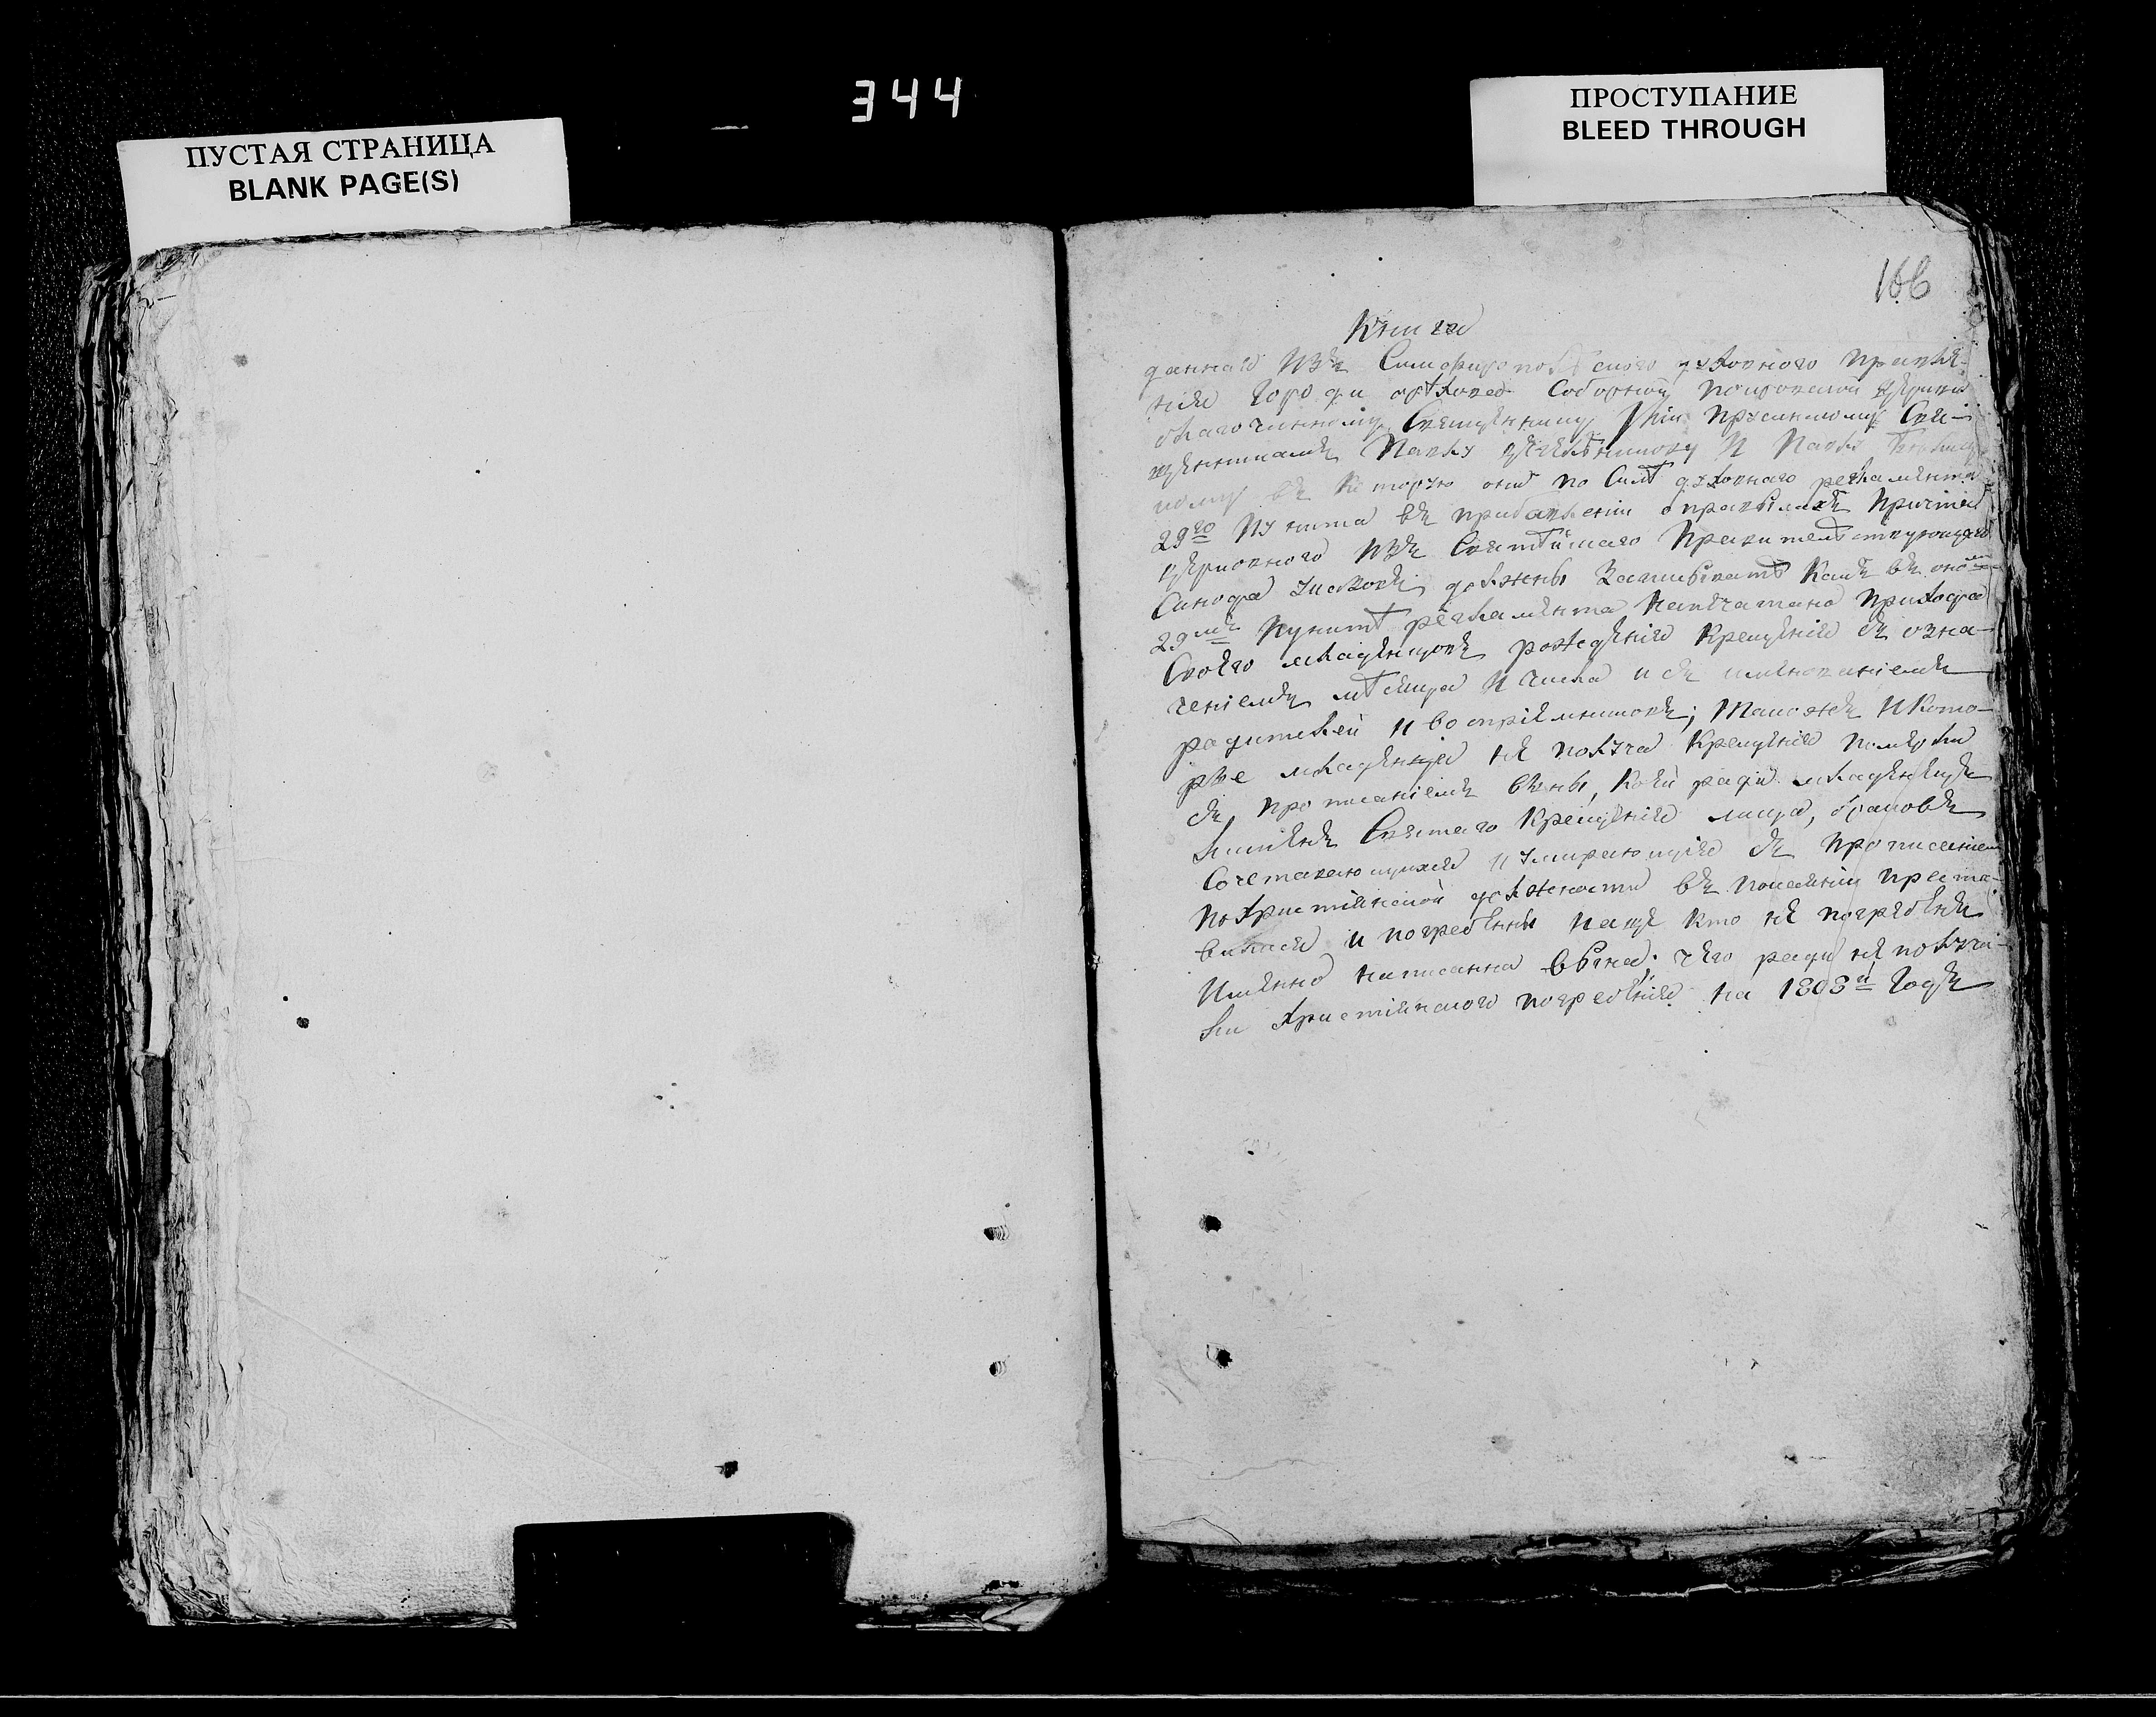 344
ПУСТАЯ СТРАНИЦА
BLANK PAGE(S)
ПРОСТУПАНИЕ
BLEED THROUGH
166
Книга
данная изъ Симферопольского духовного правле-
ния города орѣхова Соборной покровской церкви
благочинному Священнику Свя-
щенникамъ Павлу и Павлу
въ которую они по силѣ духовнаго регламента
29го пункта въ прибавленіи о правилахъ причта
церковного изъ Святѣйшаго Правительствующаго
Синода указовъ должны Записывать Какъ въ оно᷃м
29мъ пунктѣ регламента напечатано прихода
Своего младенцовъ рождения крещения съ озна-
чениемъ мѣсяца и числа и съ имянованіемъ
родителей и восприемниковъ; такожъ и кото-
рые младенца не получа Крещения померли
съ прописаніемъ вины, коей ради младенецъ
лишенъ Святаго Крещения лица, браковъ
Сочетавающихся и умирающие съ прописаніем
по Християнской должности въ покаянии преста-
вилися и погребенны и аще кто не погребенъ
Имянно написанна вина; чего ради не получи-
ли Християнского погребения на 1808й Годъ